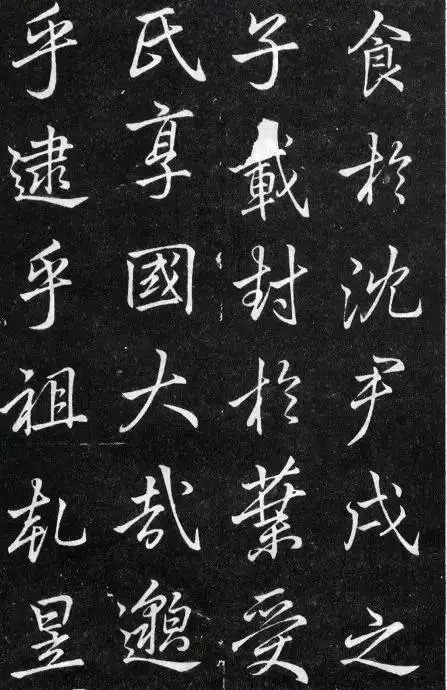 食於沈尹戌之
子載封於葉受
氏享國大哉邈
乎逮乎祖乹昱